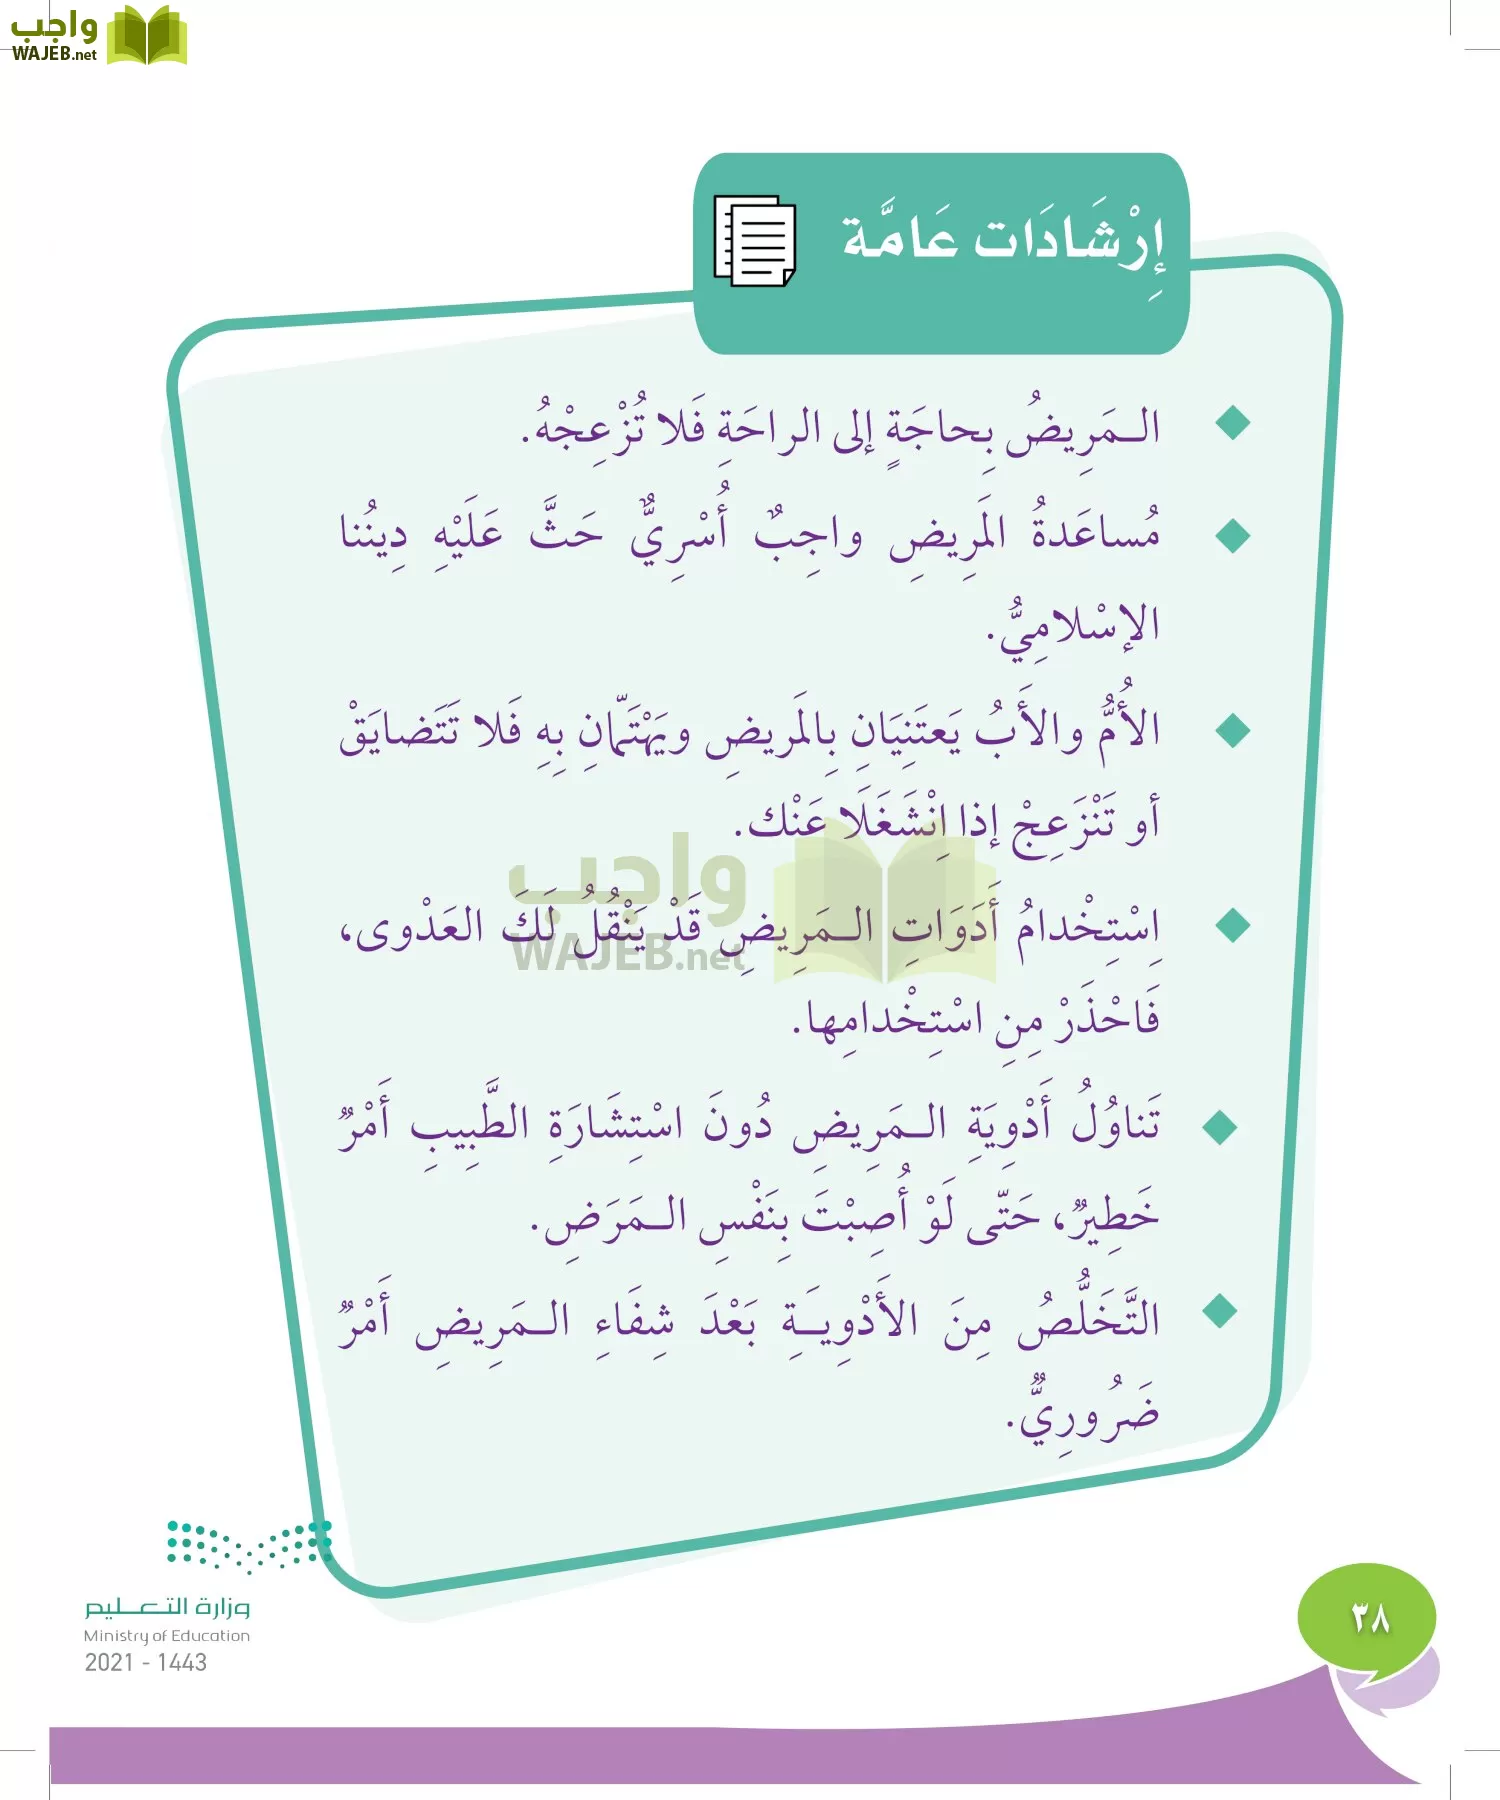 واجب
WAJEB.net
إِرْشَادَات عَامَّة
الـمَرِيضُ بِحاجَةٍ إلى الراحَةِ فَلا تُزْعِجْهُ.
مُساعَدةُ المَرِيضِ واجِبٌ أُسْرِيٌّ حَثَّ عَلَيْهِ دِينُنا
الإسْلامِيُّ.
الأُمُّ والأَبُ يَعتَنِيَانِ بِالمَريضِ ويَهْتَمّانِ بِهِ فَلا تَتَضايَقْ
أو تَنْزَعِجْ إذا اِنْشَغَلَا عَنْك.
واجب
WAJEB.net
اِسْتِخْدامُ أَدَوَاتِ الـمَرِيضِ قَدْ يَنْقُلُ لَكَ العَدْوى،
فَاحْذَرْ مِنِ اسْتِخْدامِها.
تَناوُلُ أَدْوِيَةِ الـمَرِيضِ دُونَ اسْتِشَارَةِ الطَّبِيبِ أَمْرٌ
خَطِيرٌ، حَتّى لَوْ أُصِبْتَ بِنَفْسِ الـمَرَضِ.
التَّخَلُّصُ مِنَ الأَدْوِيَـةِ بَعْدَ شِفَاءِ الـمَرِيضِ أَمْرٌ
ضَرُورِيٌّ.
وزارة التـعـلـيم
Ministry of Education
2021 - 1443
٣٨